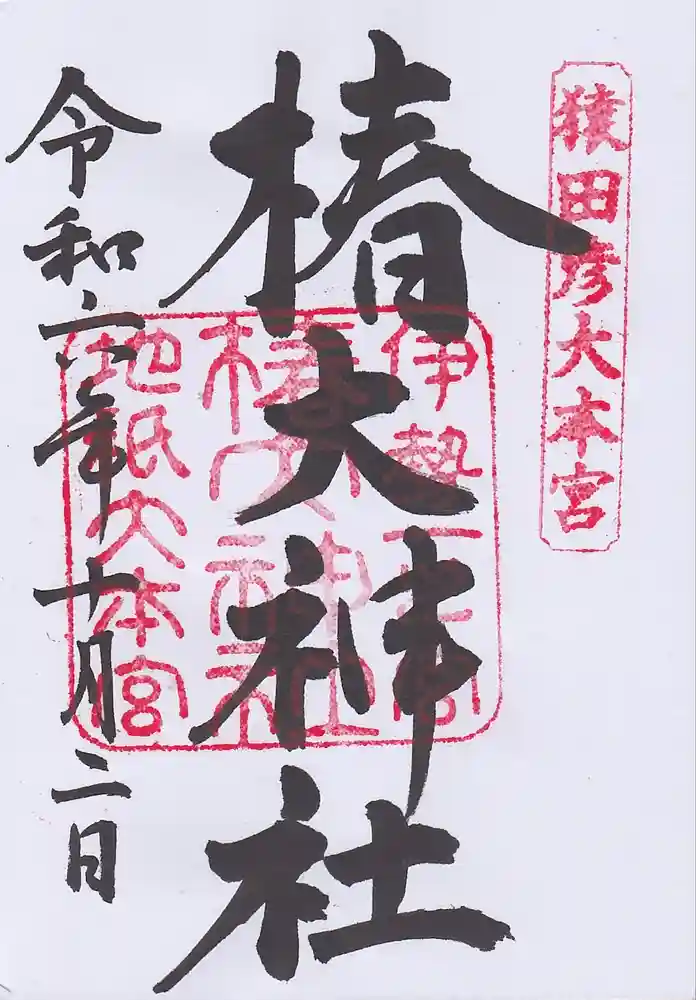 猿田彦大本宮
椿大神社
伊勢一之宮
椿大神社
地祇大本宮
令和六年十月二日